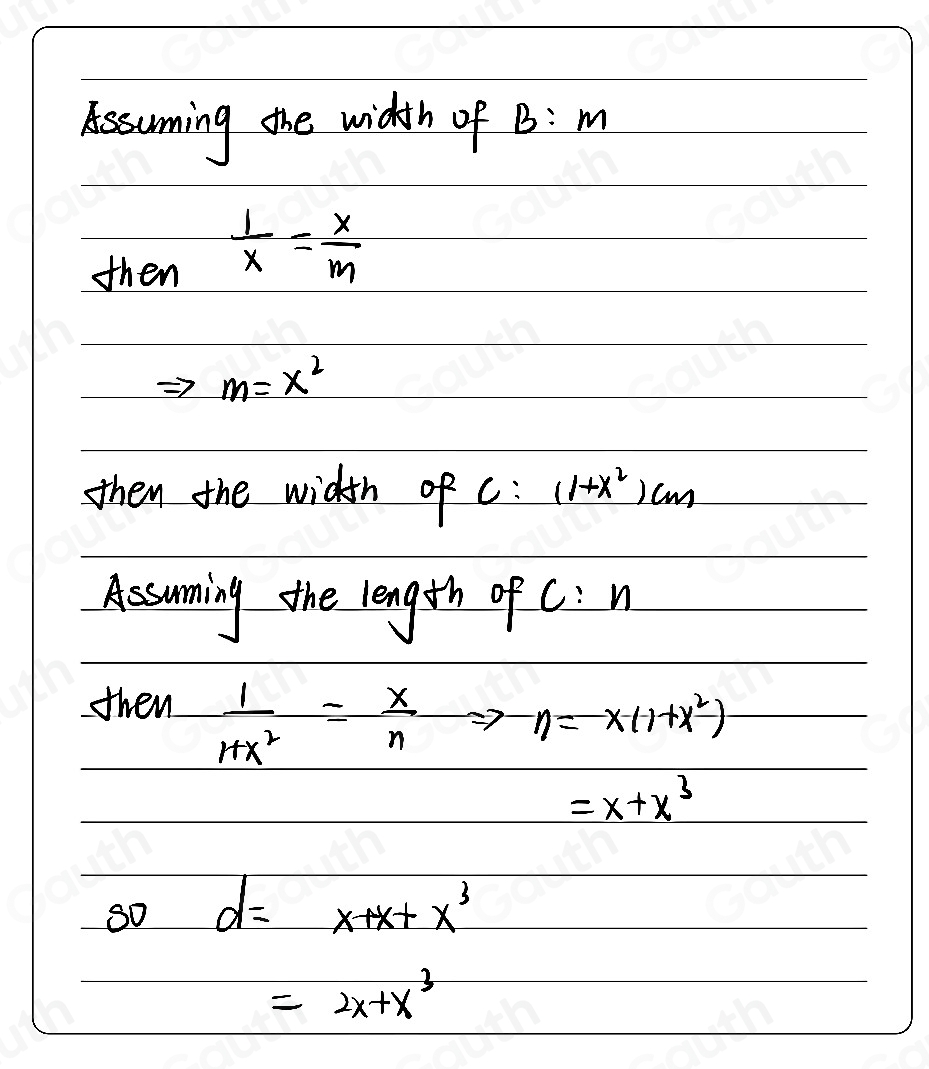 Assuming the width of B: m
then 1/x = x/m
⇒ m = x²
then the width of C: (1+x²) cm
Assuming the length of C: n
then 1/(1+x²) = x/n ⇒ n = x(1+x²)
= x+x³
so d = x+x+x³
= 2x+x³